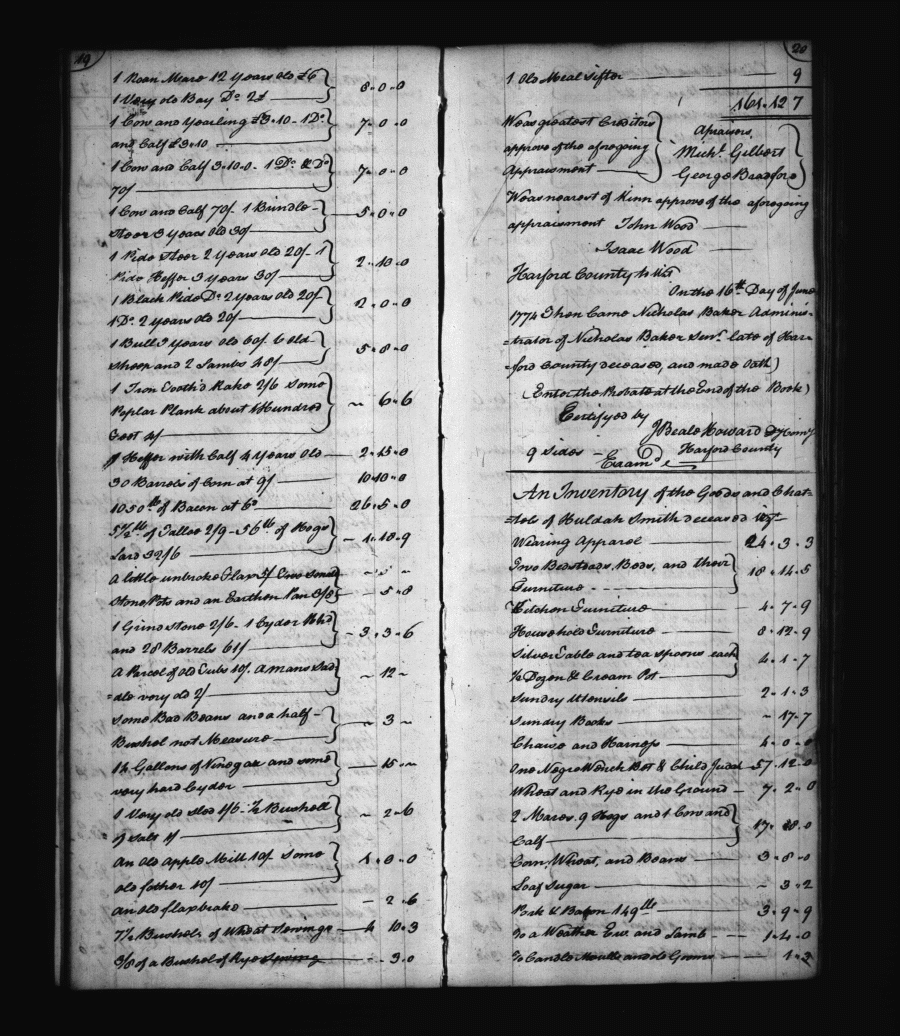 19
1 Roan Mare 12 Years old £6
1 Very old Bay Do 2£ 8 " 0 " 0
1 Cow and Yearling £3.10 - 1 Do
and Calf £3.10 7 " 0 " 0
1 Cow and Calf 3.10.0 - 1 Do & Do
70/ 7 " 0 " 0
1 Cow and Calf 70/- 1 Brindle
Steer 3 Years Old 30/ 5 " 0 " 0
1 Pide Steer 2 Years Old 20/- 1
Pide Heffer 3 Years 30/ 2 " 10 " 0
1 Black Pide Do 2 Years Old 20/
1 Do 2 Years old 20/ 2 " 0 " 0
1 Bull 3 Years Old 60/. 6 old
sheep and 2 Lambs 48/ 5 " 8 " 0
1 Iron Tooth'd Rake 2/6 Some
Poplar Plank about Hundred
Feet 4/ " 6 " 6
Heffer with Calf 4 Years Old 2 " 15 " 0
30 Barrels of Corn at 9/ 10 10 " 0
1050 lb of Bacon at 6d 26 " 5 " 0
5½ lb of Tallow 2/9 - 56 lb of Hogs
Lard 32/6 1 " 10 " 9
A little unbroke Flax
Stone Pots and an Earthen Pan 3/8 " 5 " 8
1 Grind stone 2/6 - 1 Cyder Hhd
and 28 Barrels 61/ 3 " 3 " 6
A Parcel of old Tubs 10/. A mans Sad
=dle very old 2/ " 12 "
Some Bad Beans and a half
Bushel not Measure " 3 "
14 Gallons of Vinegar and some
very hard Cyder 15 "
1 Very old sled 1/6 - ½ Bushell
of Salt 1/ " 2 " 6
An Old Apple Mill 10/ Some
old father 10/ 1 " 0 " 0
An old flaxbrake " 2 " 6
7½ Bushels of Wheat Sowings 4 10 " 3
3/8 of a Bushel of Rye Sowing " 3 " 0
20
1 Old Meal sifter 9
161 " 12 7
We as greatest Creditors
approve of the aforegoing
Appraisment
Apraisers,
Michl. Gilbert
George Bradford
We as nearest of Kinn approve of the aforegoing
appraisment John Wood
Isaac Wood
Harford County to Wit
On the 16th Day of June
1774 Then Came Nicholas Baker Adminis=
=trator of Nicholas Baker Senr. late of Har=
=ford County deceased, and made Oath)
(Enter the Probate at the End of the Book)
Certifyed by
J Beale Howard
Harford County
9 Sides - Examd.
An Inventory of the Goods and Chat=
=tels of Huldah Smith deceased Vizt
Wearing Apparel 24 " 3 " 3
Two Bedsteads, Beds, and their
Furniture 18 " 14 " 5
Kitchen Furniture 4 " 7 " 9
Household Furniture 8 " 12 " 9
Silver Table and tea spoons each
½ Dozen & Cream Pot 4 " 1 " 7
Sundry Utensils 2 " 1 " 3
Sundry Books " 17 " 7
Chaise and Harness 4 " 0 " 0
One Negro Wench Bet & Child Judah 57 " 12 " 0
Wheat and Rye in the Ground 7 " 2 " 0
2 Mares. 9 Hogs and 1 Cow and
Calf 17 " 0
Corn, Wheat, and Beans 3 " 8 " 0
Loaf Sugar " 3 " 2
Pork & Bacon 149 lb 3 " 9 " 9
To a Weather Ew. and Lamb 1 " 4 " 0
To Candle Moulds and